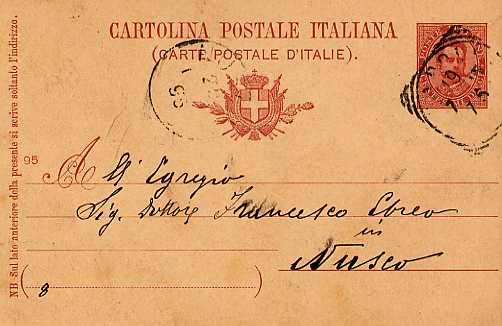 CARTOLINA POSTALE ITALIANA
(CARTE POSTALE D'ITALIE).
NB. Sul lato anteriore della presente si scrive soltanto l'indirizzo.
95
A
All' Egregio
Sig. Dottore Francesco Ebreo
in
Nusco
(8
)